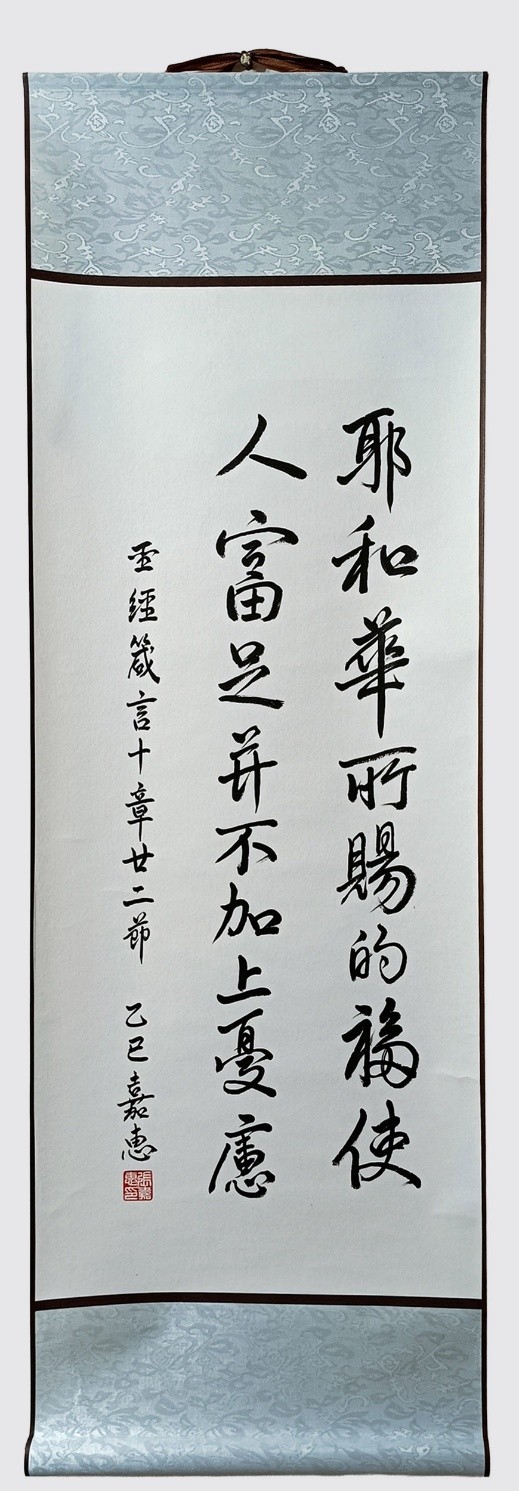 耶和華所賜的福使
人富足并不加上憂慮
聖經箴言十章廿二節 乙巳嘉惠
張嘉惠印